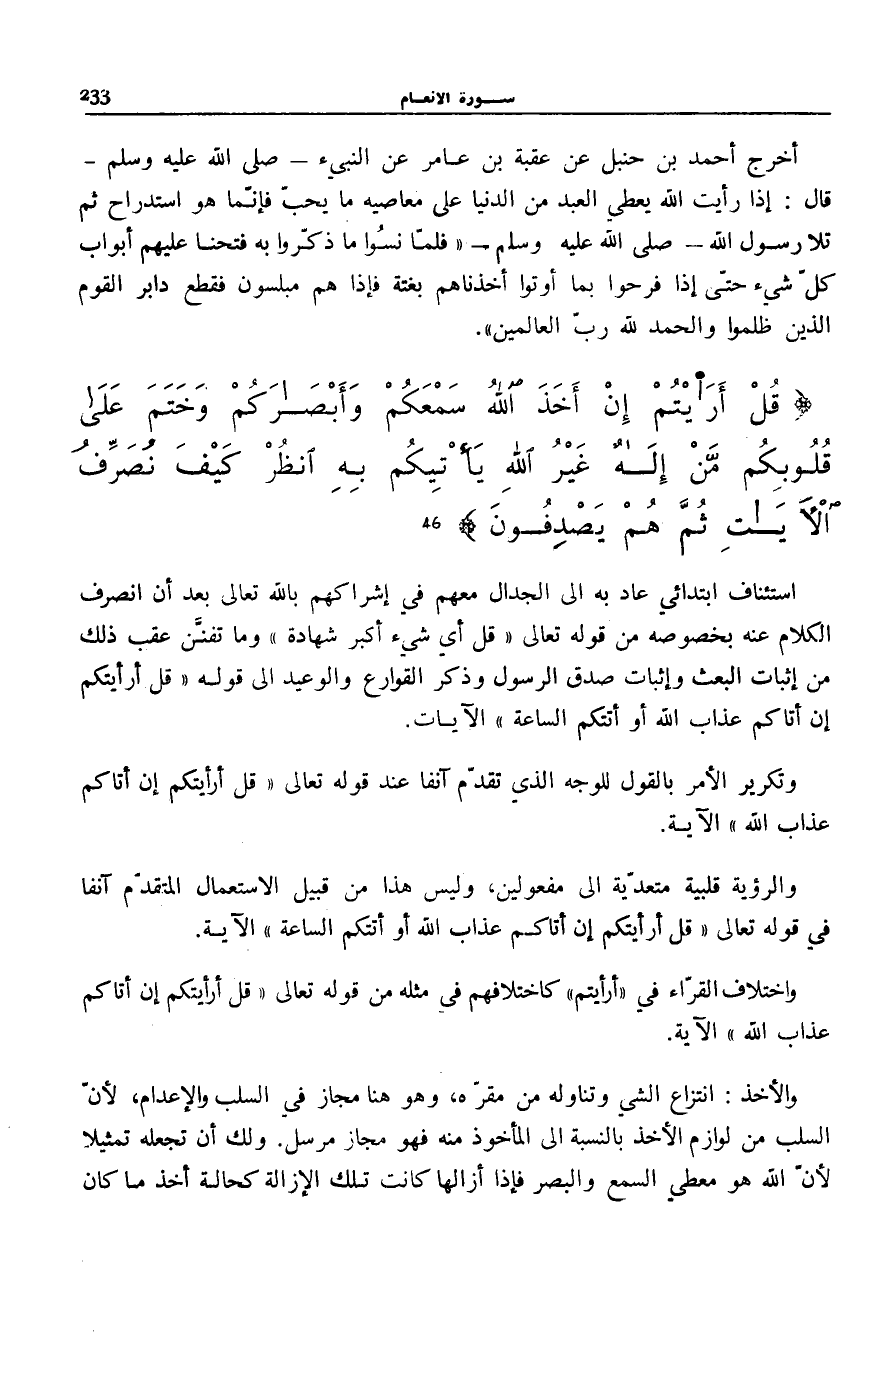 سـورة الانعـام 233
أخرج أحمد بن حنبل عن عقبة بن عـامر عن النبيء – صلى الله عليه وسلم –
قال : إذا رأيت الله يعطي العبد من الدنيا على معاصيه ما يحبّ فإنّما هو استدراج ثم
تلا رسـول الله – صلى الله عليه وسلم – « فلمّا نسُوا ما ذكّروا به فتحنـا عليهم أبواب
كلّ شيء حتّى إذا فرحوا بما أوتوا أخذناهم بغتة فإذا هم مبلسون فقطع دابر القوم
الذين ظلموا والحمد لله ربّ العالمين».
﴿ قُلْ أَرَأَيْتُمْ إِنْ أَخَذَ ٱللَّهُ سَمْعَكُمْ وَأَبْصَـٰرَكُمْ وَخَتَمَ عَلَىٰ
قُلُوبِكُم مَّنْ إِلَـٰهٌ غَيْرُ ٱللَّهِ يَأْتِيكُم بِهِ ٱنظُرْ كَيْفَ نُصَرِّفُ
ٱلْأَيَـٰتِ ثُمَّ هُمْ يَصْدِفُـونَ ﴾ 46
استئناف ابتدائي عاد به الى الجدال معهم في إشراكهم بالله تعالى بعد أن انصرف
الكلام عنه بخصوصه من قوله تعالى « قل أي شيء أكبر شهادة » وما تفنَّن عقب ذلك
من إثبات البعث وإثبات صدق الرسول وذكر القوارع والوعيد الى قولـه « قل أرأيتكم
إن أتاكم عذاب الله أو أتتكم الساعة » الآيـات.
وتكرير الأمر بالقول للوجه الذي تقدّم آنفا عند قوله تعالى « قل أرأيتكم إن أتاكم
عذاب الله » الآيـة.
والرؤية قلبية متعدّية الى مفعولين، وليس هذا من قبيل الاستعمال المتقدّم آنفا
في قوله تعالى « قل أرأيتكم إن أتاكـم عذاب الله أو أتتكم الساعة » الآيـة.
واختلاف القرّاء في «أرأيتم» كاختلافهم في مثله من قوله تعالى « قل أرأيتكم إن أتاكم
عذاب الله » الآية.
والأخذ : انتزاع الشي وتناوله من مقرّه، وهو هنا مجاز في السلب والإعدام، لأنّ
السلب من لوازم الأخذ بالنسبة الى المأخوذ منه فهو مجاز مرسل. ولك أن تجعله تمثيلا
لأنّ الله هو معطي السمع والبصر فإذا أزالها كانت تـلك الإزالة كحالـة أخذ مـا كان